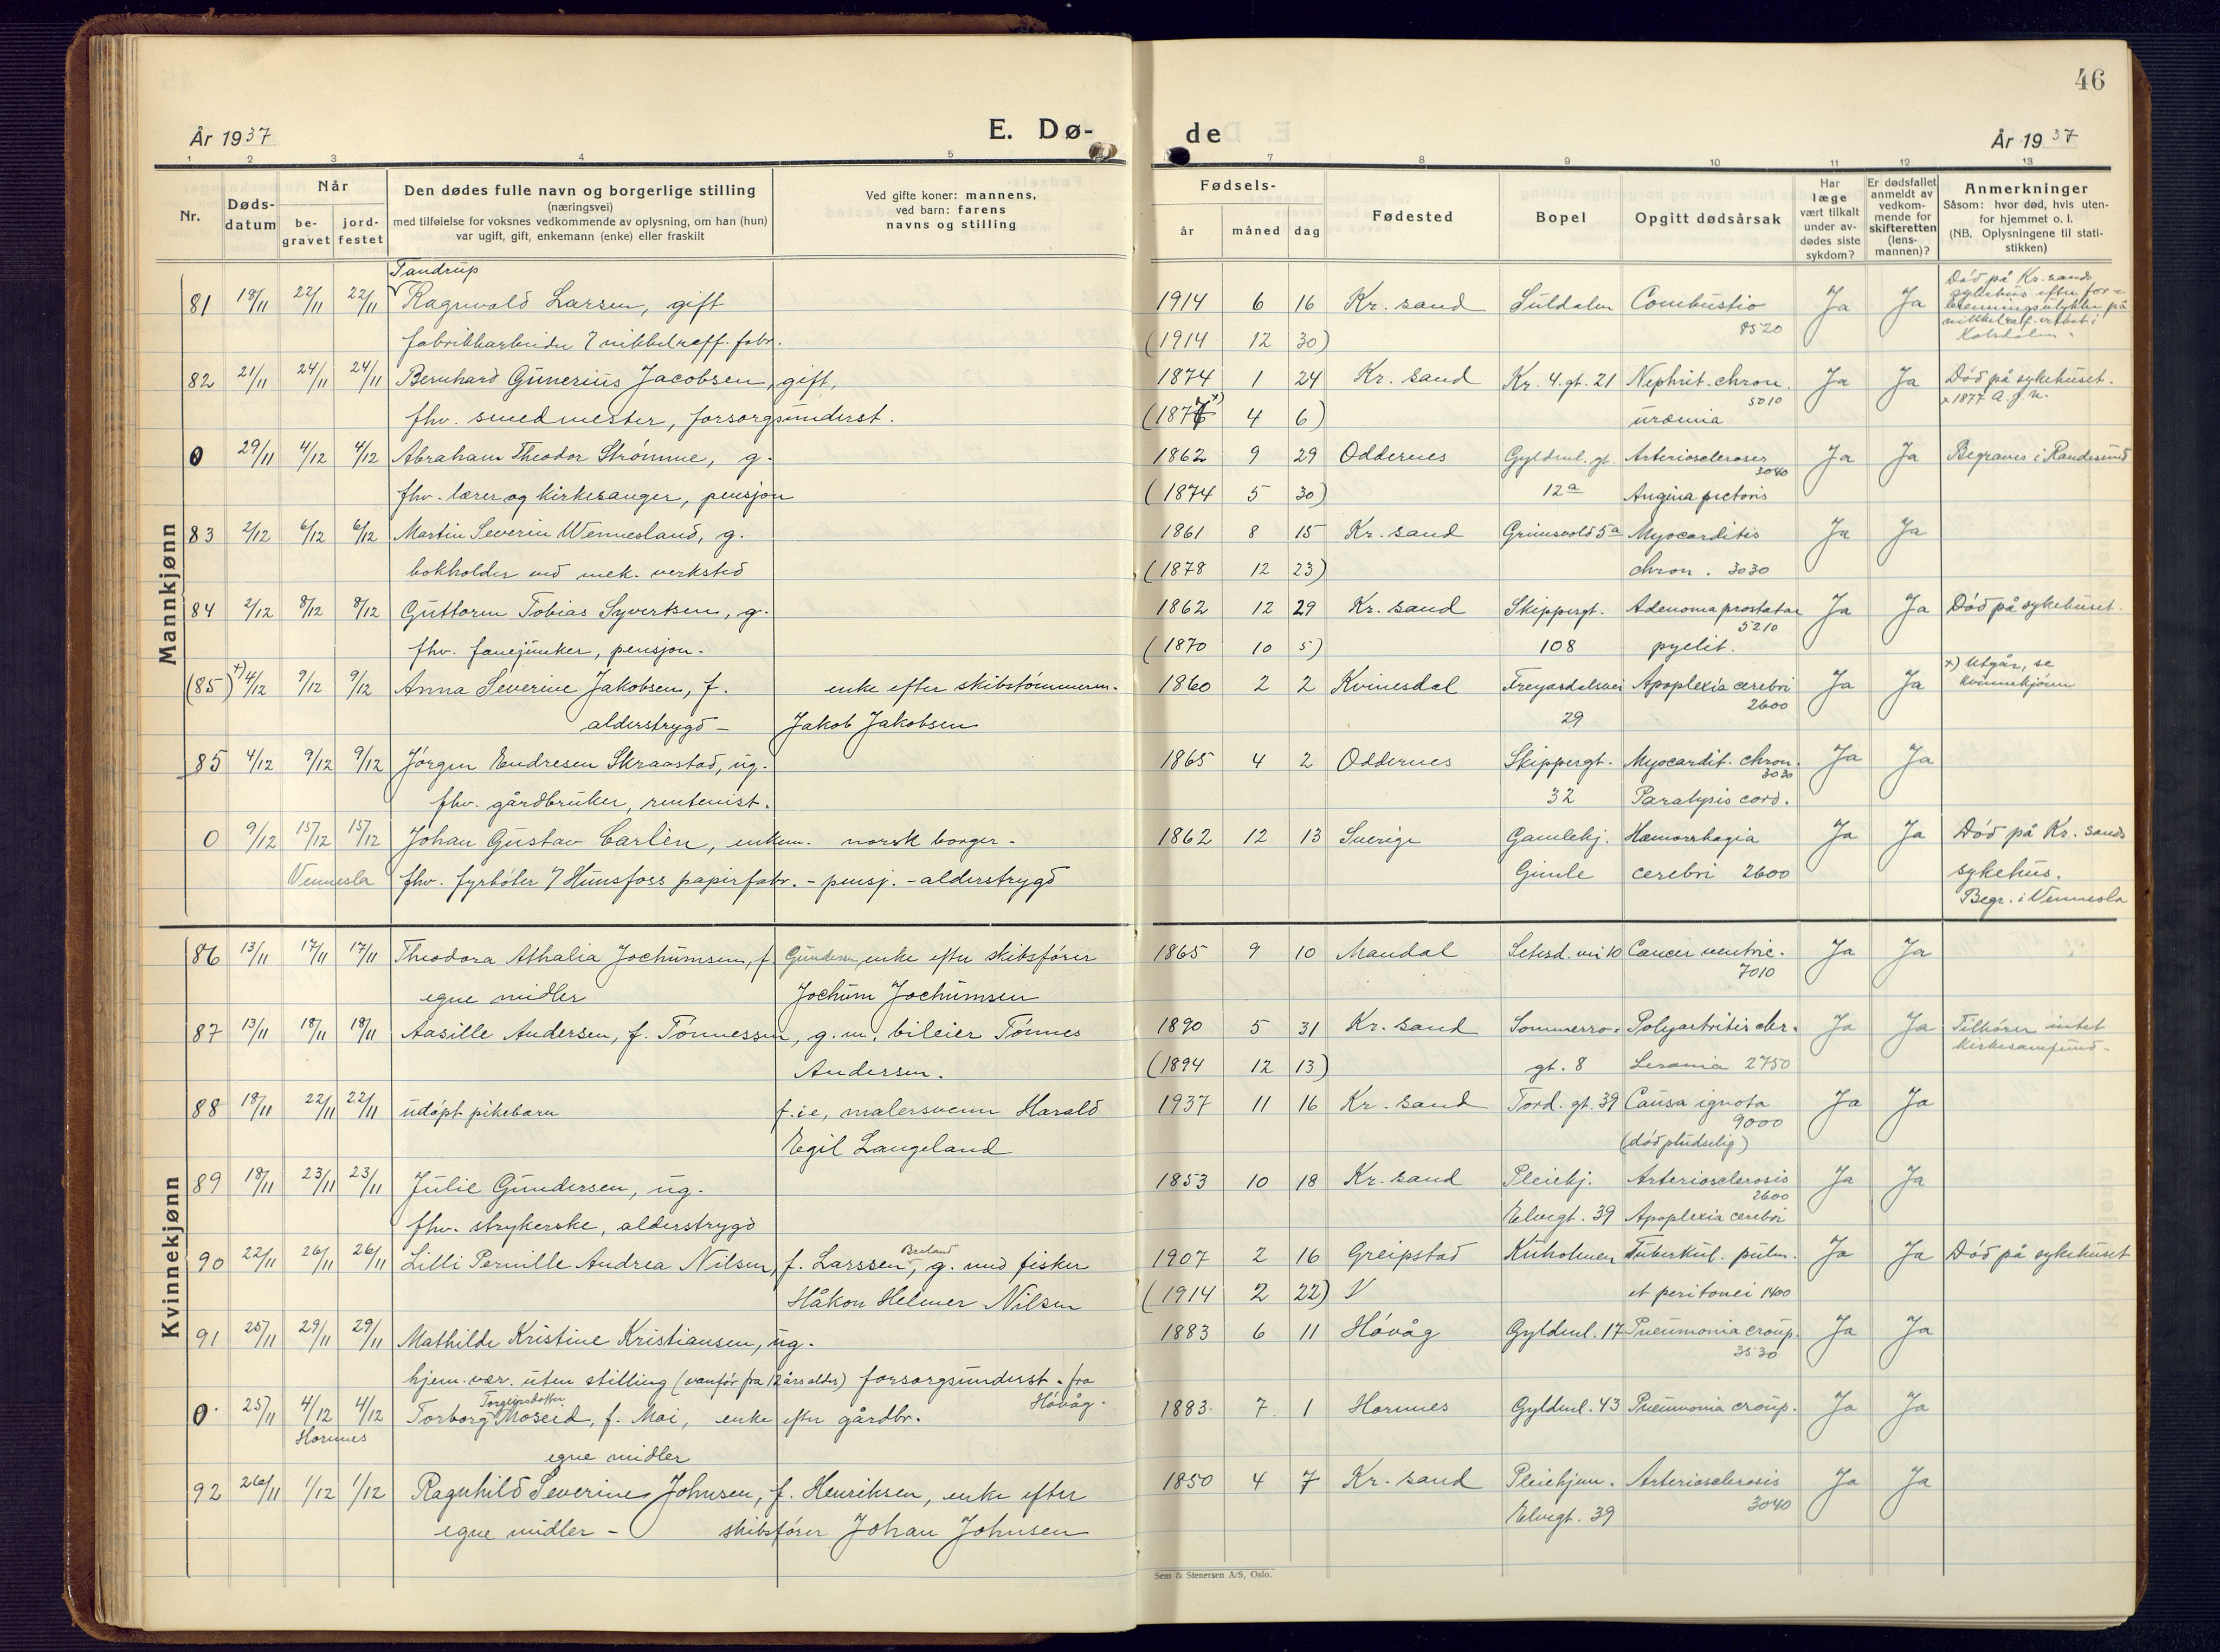 46
År 1937
E. Dø-
de
År 1937
1 2 3 4 5
7 8 9 10 11 12 13
Nr.
Dødsdatum
Når
begravet
jordfestet
Den dødes fulle navn og borgerlige stilling
(næringsvei)
med tilføielse for voksnes vedkommende av oplysning, om han (hun)
var ugift, gift, enkemann (enke) eller fraskilt
Ved gifte koner: mannens,
ved barn: farens
navns og stilling
Fødsels-
år måned dag
Fødested
Bopel
Opgitt dødsårsak
Har
læge
vært tilkalt
under av-
dødes siste
sykdom?
Er dødsfallet
anmeldt av
vedkom-
mende for
skifteretten
(lens-
mannen)?
Anmerkninger
Såsom: hvor død, hvis uten-
for hjemmet o. l.
(NB. Oplysningene til stati-
stikken)
Mannkjønn
Tandrup
81 18/11 22/11 22/11 Ragnvald Larsen, gift 1914 6 16 Kr. sand Suldalen Combustio 8520 Ja Ja Død på Kr. sands
sykehus efter for-
brenningsulykke på
nikkelraf. verket i
Kolsdalen.
fabrikkarbeider / nikkelraff. fabr. (1914 12 30)
82 21/11 24/11 24/11 Bernhard Gunerius Jacobsen, gift, 1874 1 24 Kr. sand Kr. 4. gt. 21 Nephrit. chron. 5010 Ja Ja Død på sykehuset.
x 1877
fhv. smedmester, forsorgsunderst. 4 6) uræmia
0 29/11 4/12 4/12 Abraham Theodor Strømme, g. 1862 9 29 Oddernes Gyldenl. gt. Arteriosclerosis 3040 Ja Ja Begraves i Randesund
fhv. lærer og kirkesanger, pensjon (1874 5 30) 12a Angina pectoris
83 2/12 6/12 6/12 Martin Severin Wennesland, g. 1861 8 15 Kr. sand Grimsvold 5a Myocarditis Ja Ja
bokholder ved mek. verksted (1878 12 23) chron. 3030
84 2/12 8/12 8/12 Guttorm Tobias Syvertsen, g. 1862 12 29 Kr. sand Skippergt. Adenoma prostatae 5210 Ja Ja Død på sykehuset.
fhv. fanejunker, pensjon. (1870 10 5) 108 pyelit.
(85) x) 4/12 9/12 9/12 Anna Severine Jakobsen, f. enke efter skibstømmerm. 1860 2 2 Kvinesdal Freyasdalsvei Apoplexia cerebri 2600 Ja Ja x) Utgår, se
kvinnekjønn
alderstrygd – Jakob Jakobsen 29
85 4/12 9/12 9/12 Jørgen Endresen Skraastad, ug. 1865 4 2 Oddernes Skippergt. Myocardit. chron. 3030 Ja Ja
fhv. gårdbruker, rentenist. 32 Paralysis cord.
0 9/12 15/12 15/12 Johan Gustav Carlèn, enkem. norsk borger - 1862 12 13 Sverige Gamlehj. Hæmorrhagia Ja Ja Død på Kr. sands
Vennesla fhv. fyrbøter / Hunsfoss papirfabr. – pensj. – alderstrygd Gimle cerebri 2600 sykehus.
Begr. i Vennesla
Kvinnekjønn
86 13/11 17/11 17/11 Theodora Athalia Jochumsen, f. Gundersen, enke efter skibsfører 1865 9 10 Mandal Setesd. vei 10 Cancer ventric. 7010 Ja Ja
egne midler Jochum Jochumsen
87 13/11 18/11 18/11 Aasille Andersen, f. Tønnessen, g. m. bileier Tønnes 1890 5 31 Kr. sand Sommerro- Polyartritis chr. Ja Ja Tilhører intet
kirkesamfund-
Andersen. (1894 12 13) gt. 8 2750
88 18/11 22/11 22/11 udøpt pikebarn f. i e, malersvenn Harald 1937 11 16 Kr. sand Tord. gt. 39 Causa ignota 9000 Ja Ja
Egil Langeland (død pludselig)
89 18/11 23/11 23/11 Julie Gundersen, ug. 1853 10 18 Kr. sand Pleiehj. Arteriosclerosis 2600 Ja Ja
fhv. strykerske, alderstrygd Elvegt. 39 Apoplexia cerebri
Breland
90 22/11 26/11 26/11 Lilli Pernille Andrea Nilsen, f. Larssen, g. med fisker 1907 2 16 Greipstad Kuholmen Tuberkul. pulm. Ja Ja Død på sykehuset
Håkon Helmer Nilsen (1914 2 22) V et peritonei 1400
91 25/11 29/11 29/11 Mathilde Kristine Kristiansen, ug. 1883 6 11 Høvåg Gyldenl. 17 Pneumonia croup. 3530 Ja Ja
hjem. vær. uten stilling (vanfør fra 12 års alder) forsorgsunderst. fra
Høvåg.
Torgeirsdotter
0 25/11 4/12 4/12 Torborg Moseid, f. Moi, enke efter gårdbr. 1883 7 1 Hornnes Gyldenl. 43 Pneumonia croup. Ja Ja
Hornnes
egne midler
92 26/11 1/12 1/12 Ragnhild Severine Johnsen, f. Henriksen, enke efter 1850 4 7 Kr. sand Pleiehjem. Arteriosclerosis 3040 Ja Ja
egne midler – skibsfører Johan Johnsen Elvegt. 39
Sem & Stenersen A/S, Oslo.